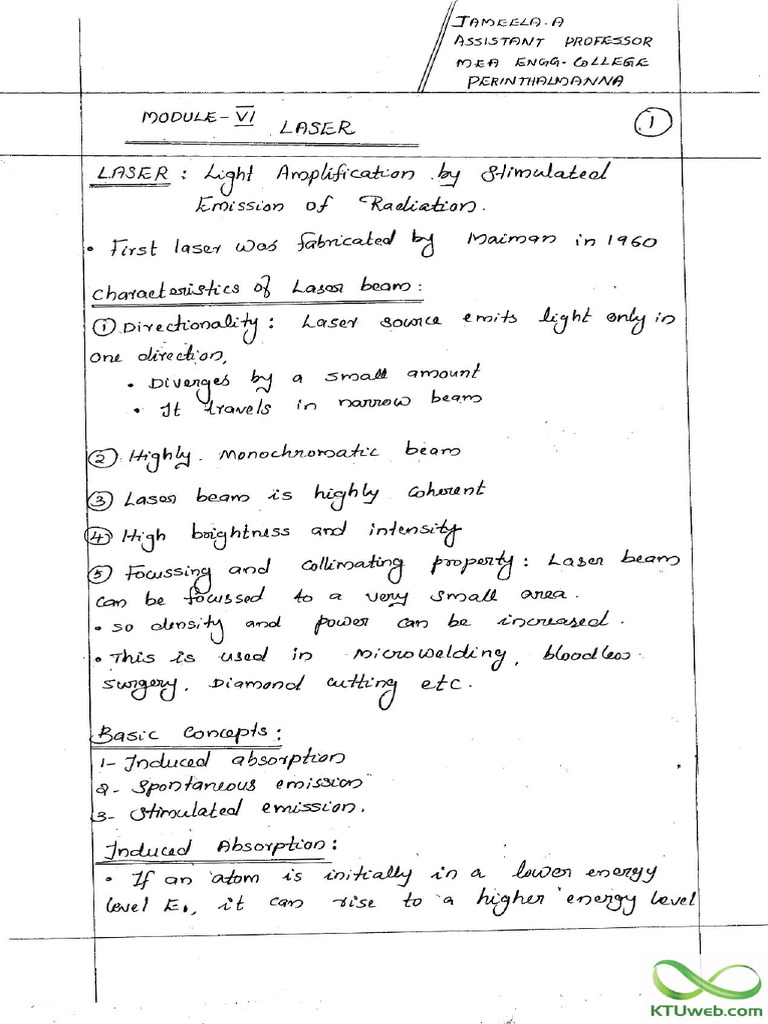 JAMEELA.A
ASSISTANT PROFESSOR
MEA ENGG-COLLEGE
PERINTHALMANNA
MODULE-VI
LASER
1
LASER : Light Amplification by Stimulated
Emission of Radiation.
• First laser was fabricated by Maiman in 1960
Characteristics of Laser beam:
① Directionality: Laser source emits light only in
one direction,
• Diverges by a small amount
• It travels in narrow beam
② Highly. Monochromatic beam
③ Laser beam is highly coherent
④ High brightness and intensity
⑤ Focussing and collimating property: Laser beam
can be focussed to a very small area.
• so density and power can be increased.
• This is used in microwelding, bloodless
surgery, Diamond cutting etc.
Basic Concepts:
1- Induced absorption
2- Spontaneous emission
3- Stimulated emission.
Induced Absorption:
• If an atom is initially in a lower energy
level E₁, it can rise to a higher energy level
KTUweb.com